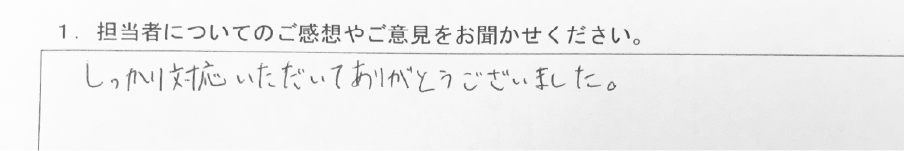 1. 担当者についてのご感想やご意見をお聞かせください。
しっかり対応いただいてありがとうございました。